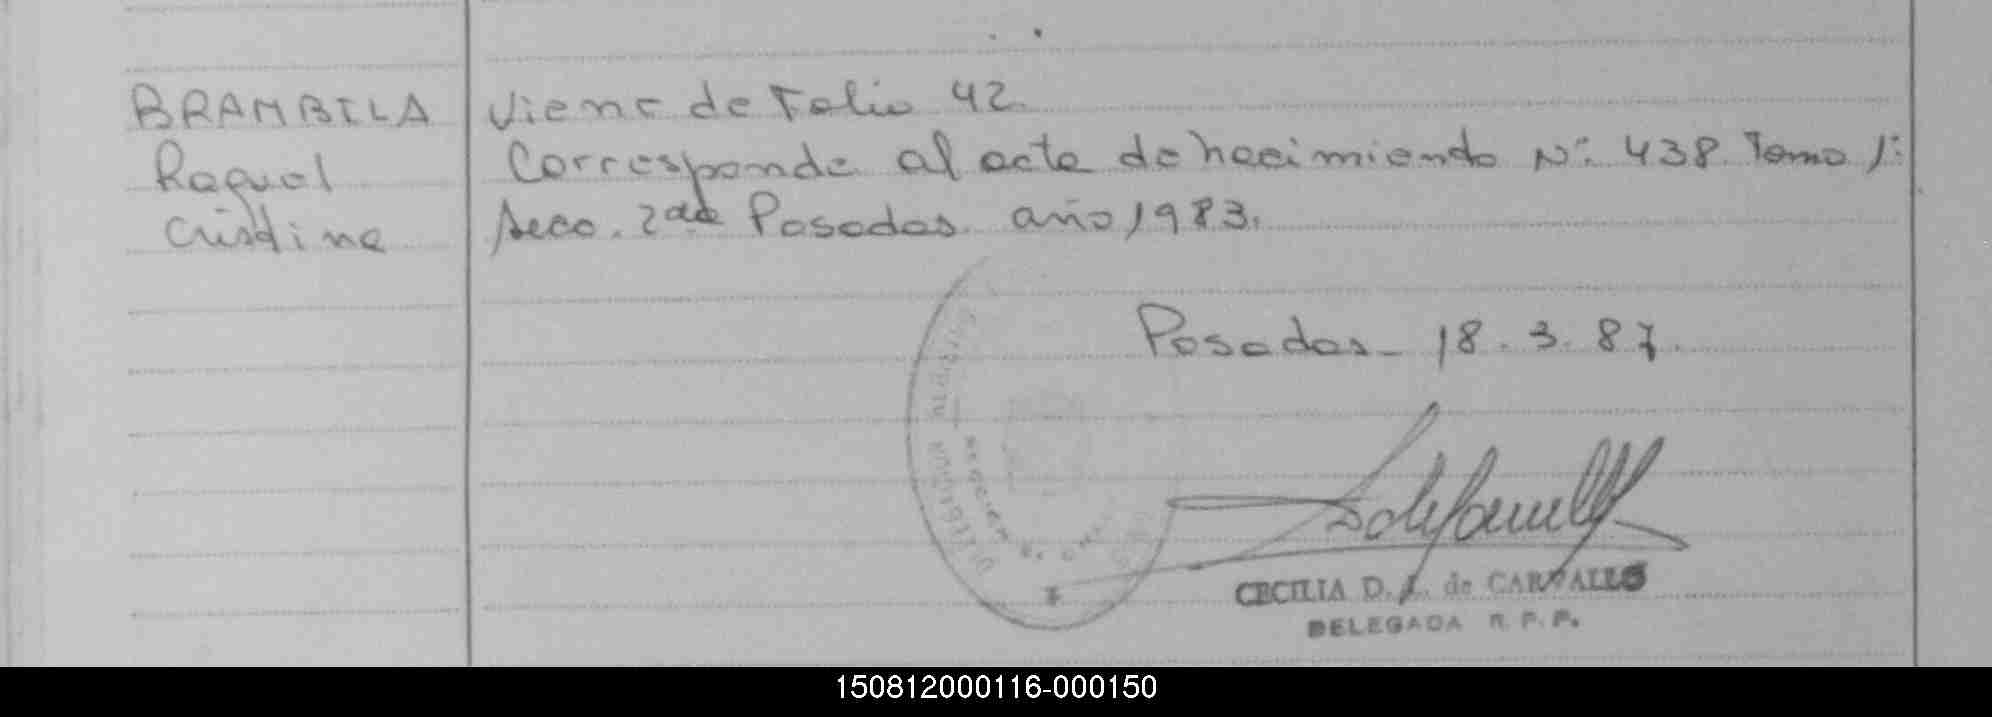 BRAMBILA
Raquel
Cristina
Viene de Folio 42.
Corresponde al acta de nacimiento Nº 438 Tomo 1º
Secc. 2da Posadas año 1983.
Posadas - 18.3.87.
CECILIA D. L. de CARVALLO
DELEGADA R. P. P.
150812000116-000150